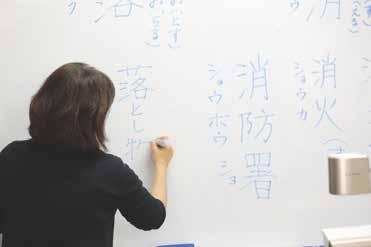 消火
ショウカ
消防署
ショウボウショ
おとす
おちる
落
落とし